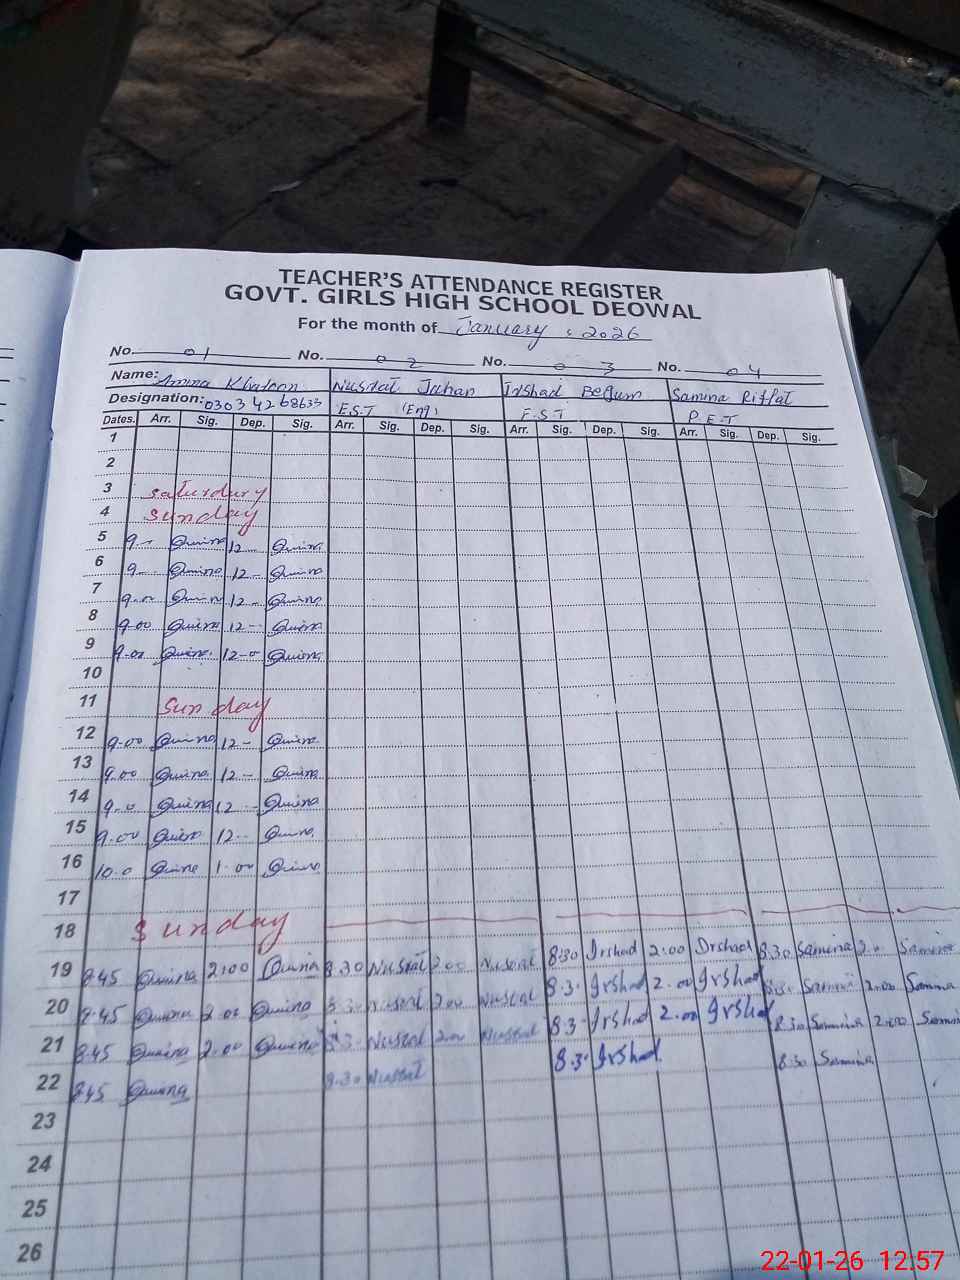 TEACHER'S ATTENDANCE REGISTER
GOVT. GIRLS HIGH SCHOOL DEOWAL
For the month of January : 2026
No. 01 No. 02 No. 03 No. 04
Name: Amina Khatoon Nusrat Jahan Irshad Begum Samina Riffat
Designation: 0303 42 68633 E.S.T (Eng) E.S.T P.E.T
Dates. Arr. Sig. Dep. Sig. Arr. Sig. Dep. Sig. Arr. Sig. Dep. Sig. Arr. Sig. Dep. Sig.
1
2
3 Saturday
4 Sunday
5 9 12
6 9 12
7 9.00 12
8 9.00 12
9 9.00 12-0
10
11 Sunday
12 9.00 12
13 9.00 12
14 9.0 12
15 9.00 12
16 10.0 1.00
17
18 Sunday
19 8.45 2:00 8.30 Nusrat 2.00 Nusrat 8:30 Irshad 2:00 Irshad 8.30 Samina 2.0 Samina
20 8.45 2.00 8.3. Nusrat 2.00 Nusrat 8.3. Irshad 2.00 Irshad 8.3. Samina 2.00 Samina
21 8.45 2.00 8.3. Nusrat 2.00 Nusrat 8.3. Irshad 2.00 Irshad 8.30 Samina 2.00 Samina
22 8.45 8.30 Nusrat 8.3. Irshad 8.30 Samina
23
24
25
26
22-01-26 12.57